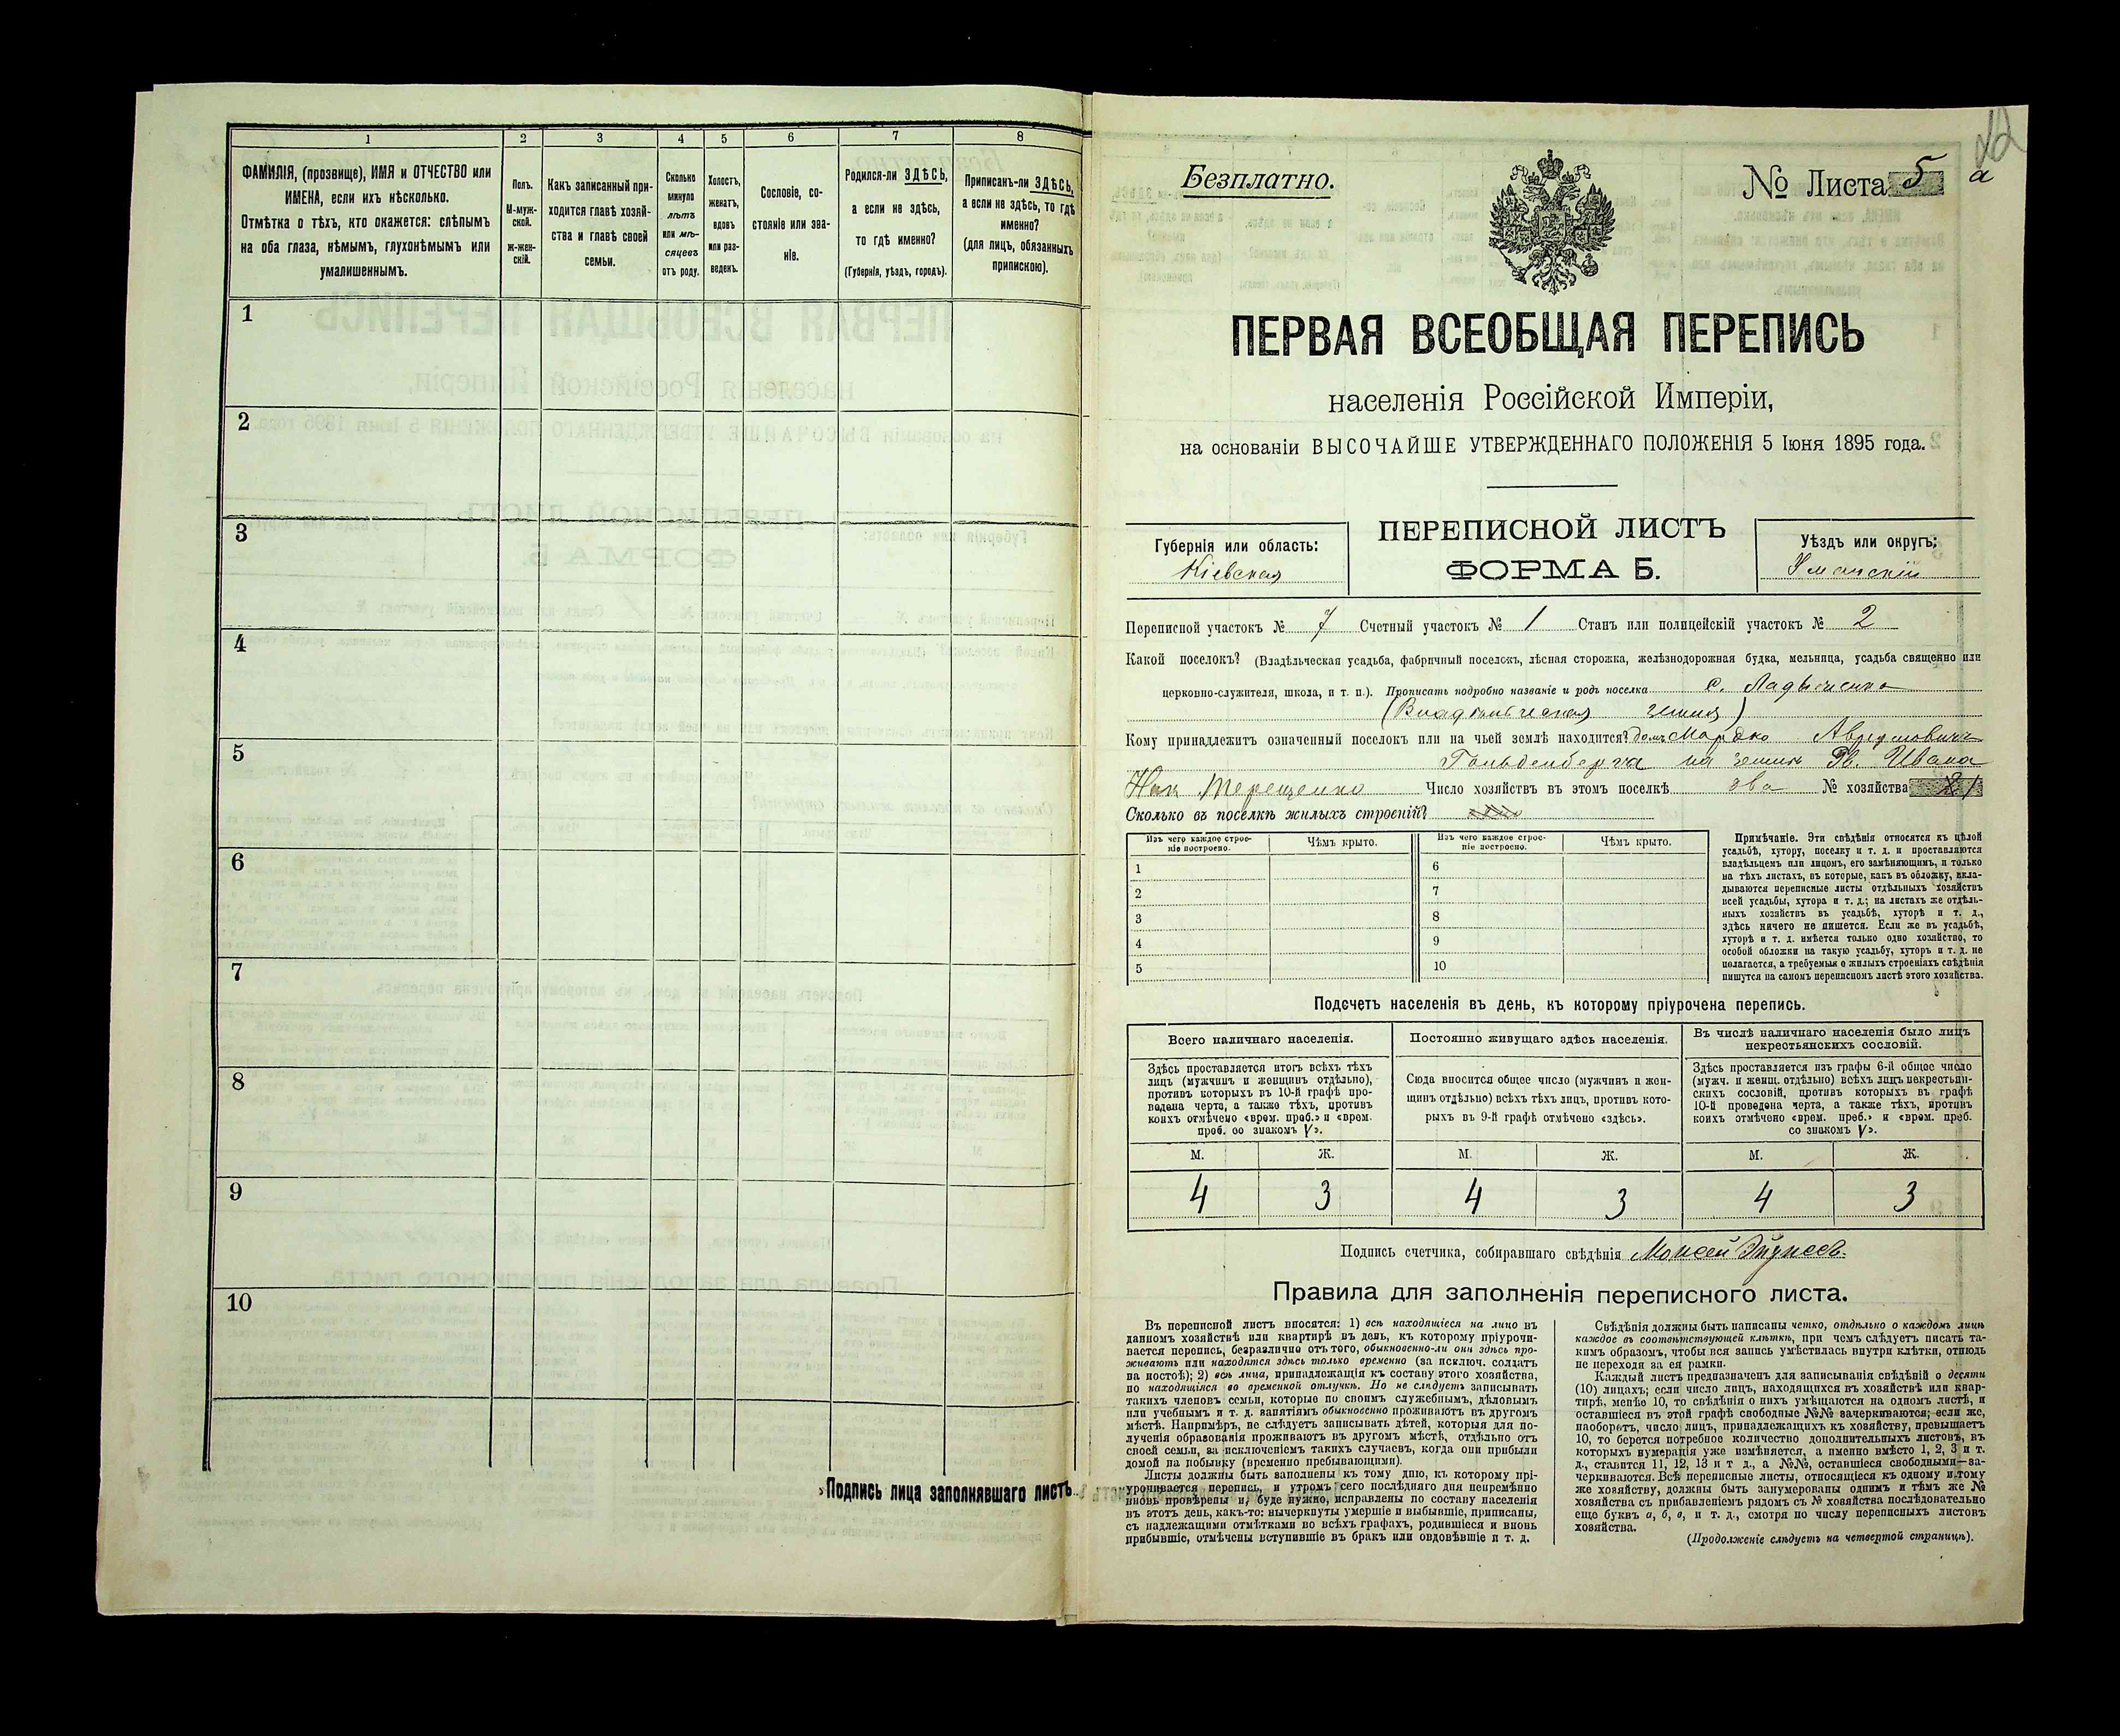 1
2
3
4
5
6
7
8
ФАМИЛІЯ, (прозвище), ИМЯ и ОТЧЕСТВО или
ИМЕНА, если ихъ нѣсколько.
Отмѣтка о тѣхъ, кто окажется: слѣпымъ
на оба глаза, нѣмымъ, глухонѣмымъ или
умалишеннымъ.
Полъ.
М-муж-
ской.
ж-жен-
скій.
Какъ записанный при-
ходится главѣ хозяй-
ства и главѣ своей
семьи.
Сколько
минуло
лѣтъ
или мѣ-
сяцевъ
отъ роду.
Холостъ,
женатъ,
вдовъ
или раз-
веденъ.
Сословіе, со-
стояніе или зва-
ніе.
Родился-ли ЗДѢСЬ,
а если не здѣсь,
то гдѣ именно?
(Губернія, уѣздъ, городъ).
Приписанъ-ли ЗДѢСЬ,
а если не здѣсь, то гдѣ
именно?
(для лицъ, обязанныхъ
припискою).
1
2
3
4
5
6
7
8
9
10
Подпись лица заполнявшаго листъ
Безплатно.
№ Листа 5 а
ПЕРВАЯ ВСЕОБЩАЯ ПЕРЕПИСЬ
населенія Россійской Имперіи,
на основаніи ВЫСОЧАЙШЕ УТВЕРЖДЕННАГО ПОЛОЖЕНІЯ 5 Іюня 1895 года.
Губернія или область:
Кіевская
ПЕРЕПИСНОЙ ЛИСТЪ
ФОРМА Б.
Уѣздъ или округъ:
Уманскій
Переписной участокъ № 7 Счетный участокъ № 1 Станъ или полицейскій участокъ № 2
Какой поселокъ? (Владѣльческая усадьба, фабричный поселокъ, лѣсная сторожка, желѣзнодорожная будка, мельница, усадьба священно или
церковно-служителя, школа, и т. п.). Прописать подробно названіе и родъ поселка с. Ладыженка
(Владѣльческая земля)
Кому принадлежитъ означенный поселокъ или на чьей землѣ находится? домъ Мордко
Гольденберга на земли Ивана
Терещенко Число хозяйствъ въ этомъ поселкѣ два № хозяйства 1
Сколько въ поселкѣ жилыхъ строеній?
Изъ чего каждое строе-
ніе построено.
Чѣмъ крыто.
Изъ чего каждое строе-
ніе построено.
Чѣмъ крыто.
1
2
3
4
5
6
7
8
9
10
Примѣчаніе. Эти свѣдѣнія относятся къ цѣлой
усадьбѣ, хутору, поселку и т. д. и проставляются
владѣльцемъ или лицомъ, его замѣняющимъ, и только
на тѣхъ листахъ, въ которые, какъ въ обложку, вкла-
дываются переписные листы отдѣльныхъ хозяйствъ
всей усадьбы, хутора и т. д.; на листахъ же отдѣль-
ныхъ хозяйствъ въ усадьбѣ, хуторѣ и т. д.,
здѣсь ничего не пишется. Если же въ усадьбѣ,
хуторѣ и т. д. имѣется только одно хозяйство, то
особой обложки на такую усадьбу, хуторъ и т. д. не
полагается, а требуемыя о жилыхъ строеніяхъ свѣдѣнія
пишутся на самомъ переписномъ листѣ этого хозяйства.
Подсчетъ населенія въ день, къ которому пріурочена перепись.
Всего наличнаго населенія.
Здѣсь проставляется итогъ всѣхъ тѣхъ
лицъ (мужчинъ и женщинъ отдѣльно),
противъ которыхъ въ 10-й графѣ про-
ведена черта, а также тѣхъ, противъ
коихъ отмѣчено «врем. преб.» и «врем.
преб. со знакомъ V».
Постоянно живущаго здѣсь населенія.
Сюда вносится общее число (мужчинъ и жен-
щинъ отдѣльно) всѣхъ тѣхъ лицъ, противъ кото-
рыхъ въ 9-й графѣ отмѣчено «здѣсь».
Въ числѣ наличнаго населенія было лицъ
некрестьянскихъ сословій.
Здѣсь проставляется изъ графы 6-й общее число
(мужч. и женщ. отдѣльно) всѣхъ лицъ некрестьян-
скихъ сословій, противъ которыхъ въ графѣ
10-й проведена черта, а также тѣхъ, противъ
коихъ отмѣчено «врем. преб.» и «врем. преб.
со знакомъ V».
М. Ж. М. Ж. М. Ж.
4 3 4 3 4 3
Подпись счетчика, собиравшаго свѣдѣнія Моисей
Правила для заполненія переписного листа.
Въ переписной листъ вносятся: 1) всѣ находящіеся на лицо въ
данномъ хозяйствѣ или квартирѣ въ день, къ которому пріурочи-
вается перепись, безразлично отъ того, обыкновенно-ли они здѣсь про-
живаютъ или находятся здѣсь только временно (за исключ. солдатъ
на постоѣ); 2) всѣ лица, принадлежащія къ составу этого хозяйства,
но находящіяся во временной отлучкѣ. Но не слѣдуетъ записывать
такихъ членовъ семьи, которые по своимъ служебнымъ, дѣловымъ
или учебнымъ и т. д. занятіямъ обыкновенно проживаютъ въ другомъ
мѣстѣ. Напримѣръ, не слѣдуетъ записывать дѣтей, которыя для по-
лученія образованія проживаютъ въ другомъ мѣстѣ, отдѣльно отъ
своей семьи, за исключеніемъ такихъ случаевъ, когда они прибыли
домой на побывку (временно пребывающими).
Листы должны быть заполнены къ тому дню, къ которому прі-
урочивается перепись, и утромъ сего послѣдняго дня непремѣнно
вновь провѣрены и, буде нужно, исправлены по составу населенія
въ этотъ день, какъ-то: вычеркнуты умершіе и выбывшіе, приписаны,
съ надлежащими отмѣтками во всѣхъ графахъ, родившіеся и вновь
прибывшіе, отмѣчены вступившіе въ бракъ или овдовѣвшіе и т. д.
Свѣдѣнія должны быть написаны четко, отдѣльно о каждомъ лицѣ
каждое въ соотвѣтствующей клѣткѣ, при чемъ слѣдуетъ писать та-
кимъ образомъ, чтобы вся запись умѣстилась внутри клѣтки, отнюдь
не переходя за ея рамки.
Каждый листъ предназначенъ для записыванія свѣдѣній о десяти
(10) лицахъ; если число лицъ, находящихся въ хозяйствѣ или квар-
тирѣ, менѣе 10, то свѣдѣнія о нихъ умѣщаются на одномъ листѣ, и
оставшіеся въ этой графѣ свободные №№ зачеркиваются; если же,
наоборотъ, число лицъ, принадлежащихъ къ хозяйству, превышаетъ
10, то берется потребное количество дополнительныхъ листовъ, въ
которыхъ нумерація уже измѣняется, а именно вмѣсто 1, 2, 3 и т.
д., ставится 11, 12, 13 и т д., а №№, оставшіеся свободными—за-
черкиваются. Всѣ переписные листы, относящіеся къ одному и тому
же хозяйству, должны быть занумерованы однимъ и тѣмъ же №
хозяйства съ прибавленіемъ рядомъ съ № хозяйства послѣдовательно
еще буквъ а, б, в, и т. д., смотря по числу переписныхъ листовъ
хозяйства.
(Продолженіе слѣдуетъ на четвертой страницѣ).